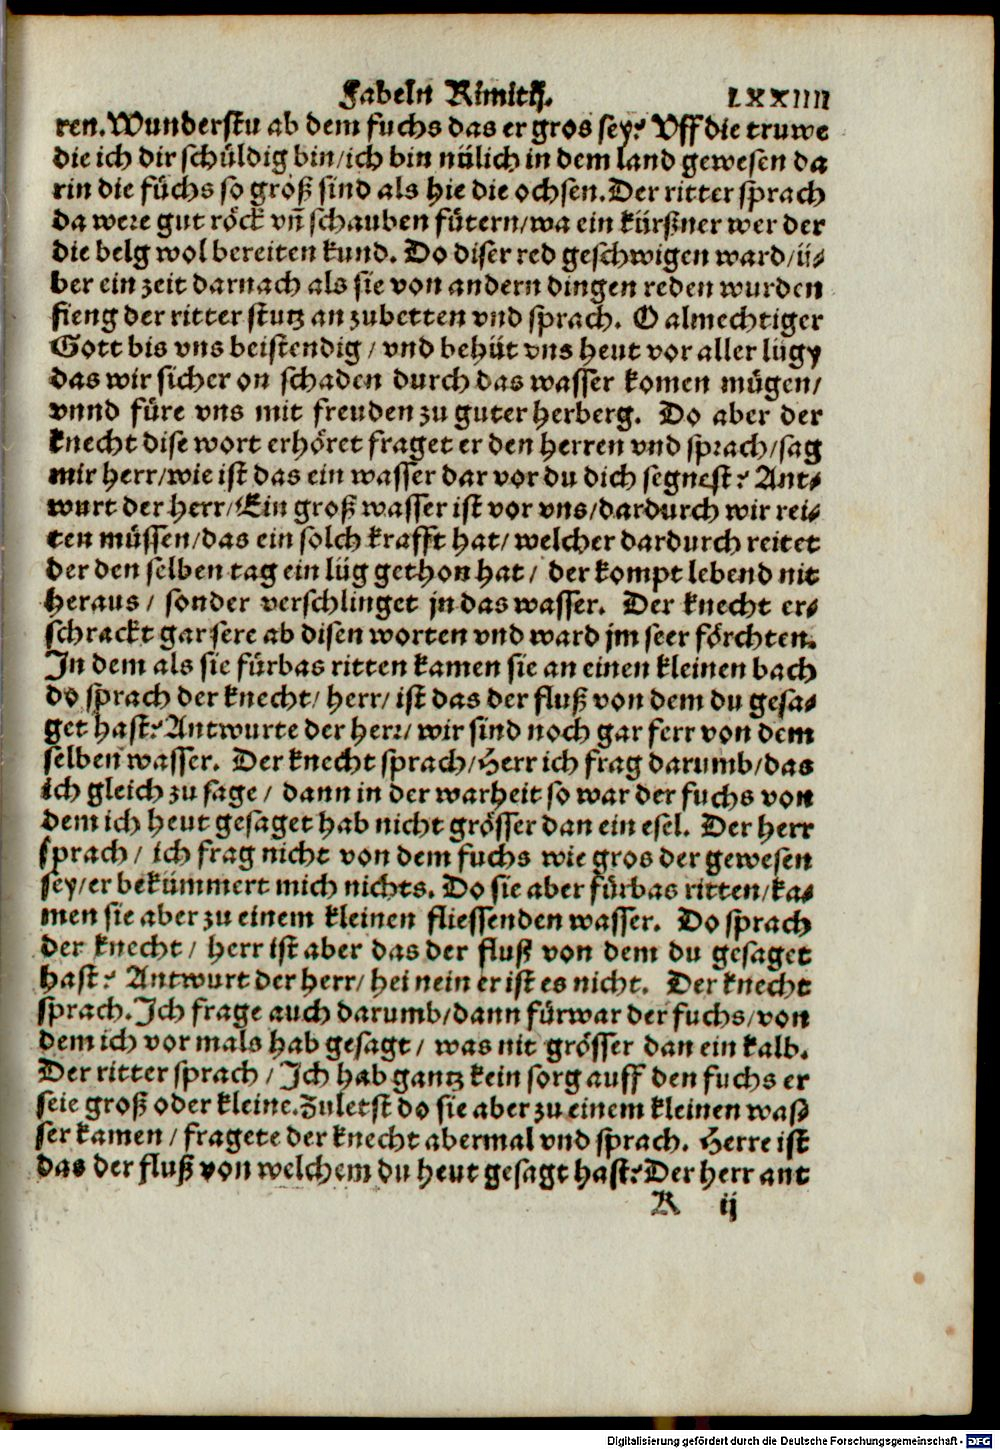 Fabeln Rimitij. LXXIIII
ren. Wunderstu ab dem fuchs das er gros sey? Vff die truwe
die ich dir schüldig bin / ich bin nülich in dem land gewesen da
rin die füchs so groß sind als hie die ochsen. Der ritter sprach
da were gut röck vñ schauben fütern / wa ein kürßner wer der
die belg wol bereiten kund. Do diser red geschwigen ward / ü-
ber ein zeit darnach als sie von andern dingen reden wurden
fieng der ritter stutz an zubetten vnd sprach. O almechtiger
Gott bis vns beistendig / vnd behüt vns heut vor aller lügy
das wir sicher on schaden durch das wasser komen mügen /
vnnd füre vns mit freuden zu guter herberg. Do aber der
knecht dise wort erhöret fraget er den herren vnd sprach / sag
mir herr / wie ist das ein wasser dar vor du dich segnest? Ant-
wurt der herr / Ein groß wasser ist vor vns / dardurch wir rei-
ten müssen / das ein solch krafft hat / welcher dardurch reitet
der den selben tag ein lüg gethon hat / der kompt lebend nit
heraus / sonder verschlinget jn das wasser. Der knecht er-
schrackt gar sere ab disen worten vnd ward jm seer förchten.
In dem als sie fürbas ritten kamen sie an einen kleinen bach
do sprach der knecht / herr / ist das der fluß von dem du gesa-
get hast? Antwurte der herr / wir sind noch gar ferr von dem
selben wasser. Der knecht sprach / Herr ich frag darumb / das
ich gleich zu sage / dann in der warheit so war der fuchs von
dem ich heut gesaget hab nicht grösser dan ein esel. Der herr
sprach / ich frag nicht von dem fuchs wie gros der gewesen
sey / er bekümmert mich nichts. Do sie aber fürbas ritten / ka-
men sie aber zu einem kleinen fliessenden wasser. Do sprach
der knecht / herr ist aber das der fluß von dem du gesaget
hast? Antwurt der herr / hei nein er ist es nicht. Der knecht
sprach. Ich frage auch darumb / dann fürwar der fuchs / von
dem ich vor mals hab gesagt / was nit grösser dan ein kalb.
Der ritter sprach / Ich hab gantz kein sorg auff den fuchs er
seie groß oder kleine. Zuletst do sie aber zu einem kleinen was-
ser kamen / fragete der knecht abermal vnd sprach. Herre ist
das der fluß von welchem du heut gesagt hast? Der herr ant
K ij
Digitalisierung gefördert durch die Deutsche Forschungsgemeinschaft - DFG